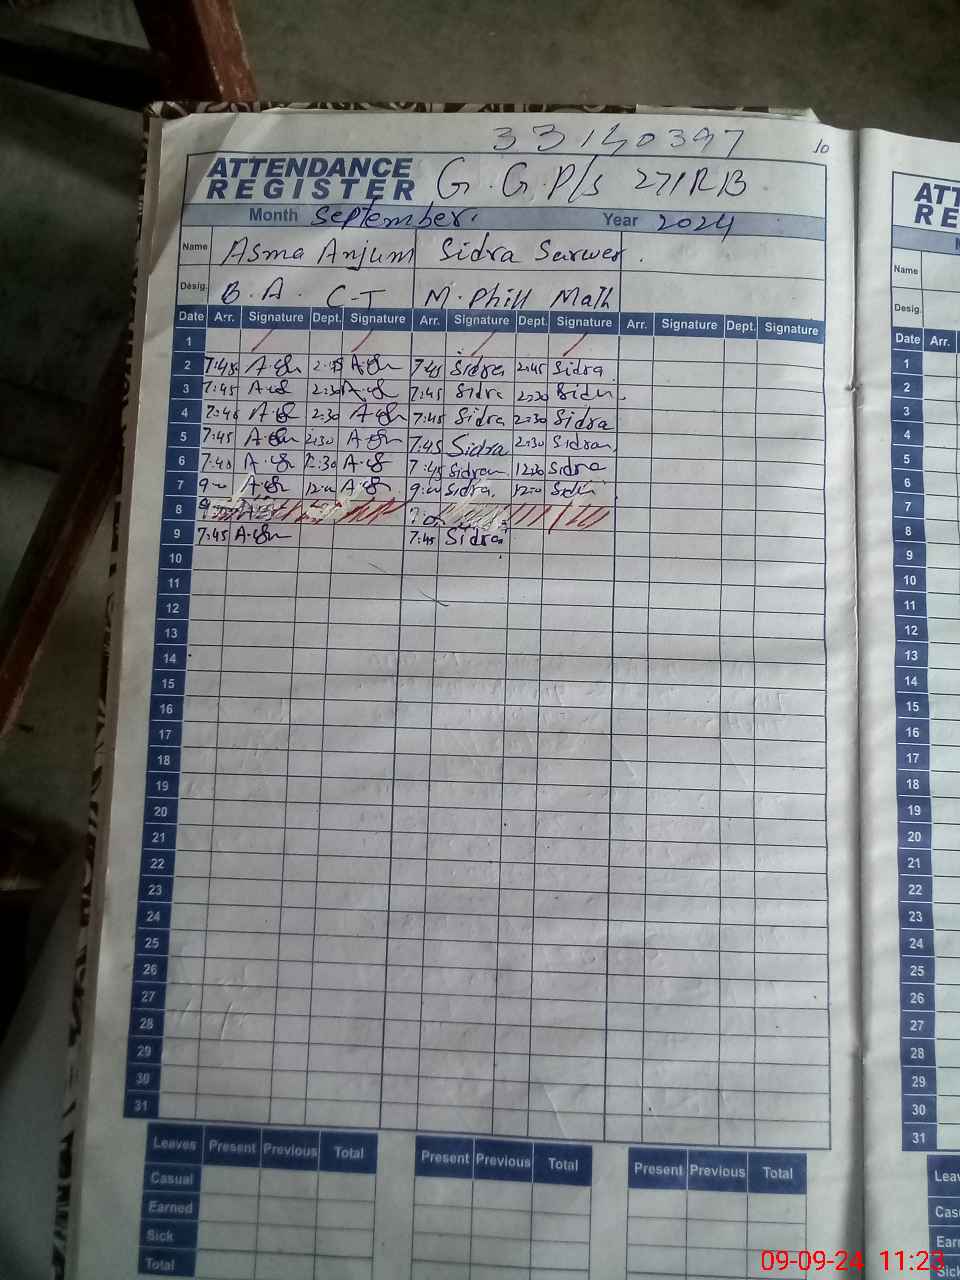 33140397
10
ATTENDANCE
REGISTER G.G.P/s 271RB
Month September. Year 2024
Name Asma Anjum Sidra Sarwer.
Desig. B.A. C-T M.Phill Math
Date Arr. Signature Dept. Signature Arr. Signature Dept. Signature Arr. Signature Dept. Signature
1
2 7:45 7:45 Sidra 2:45 Sidra
3 7:45 2:30 7:45 Sidra 2:30 Sidra
4 7:45 2:30 7:45 Sidra 2:30 Sidra
5 7:45 2:30 7:45 Sidra 2:30 Sidra
6 7:40 12:30 7:45 Sidra 12:30 Sidra
7 9:00 12:00 9:00 Sidra 12:00 Sidra
8
9 7:45 7:45 Sidra
10
11
12
13
14
15
16
17
18
19
20
21
22
23
24
25
26
27
28
29
30
31
Leaves Present Previous Total Present Previous Total Present Previous Total
Casual
Earned
Sick
Total
ATT
RE
Name
Desig.
Date Arr.
1
2
3
4
5
6
7
8
9
10
11
12
13
14
15
16
17
18
19
20
21
22
23
24
25
26
27
28
29
30
31
09-09-24 11:23